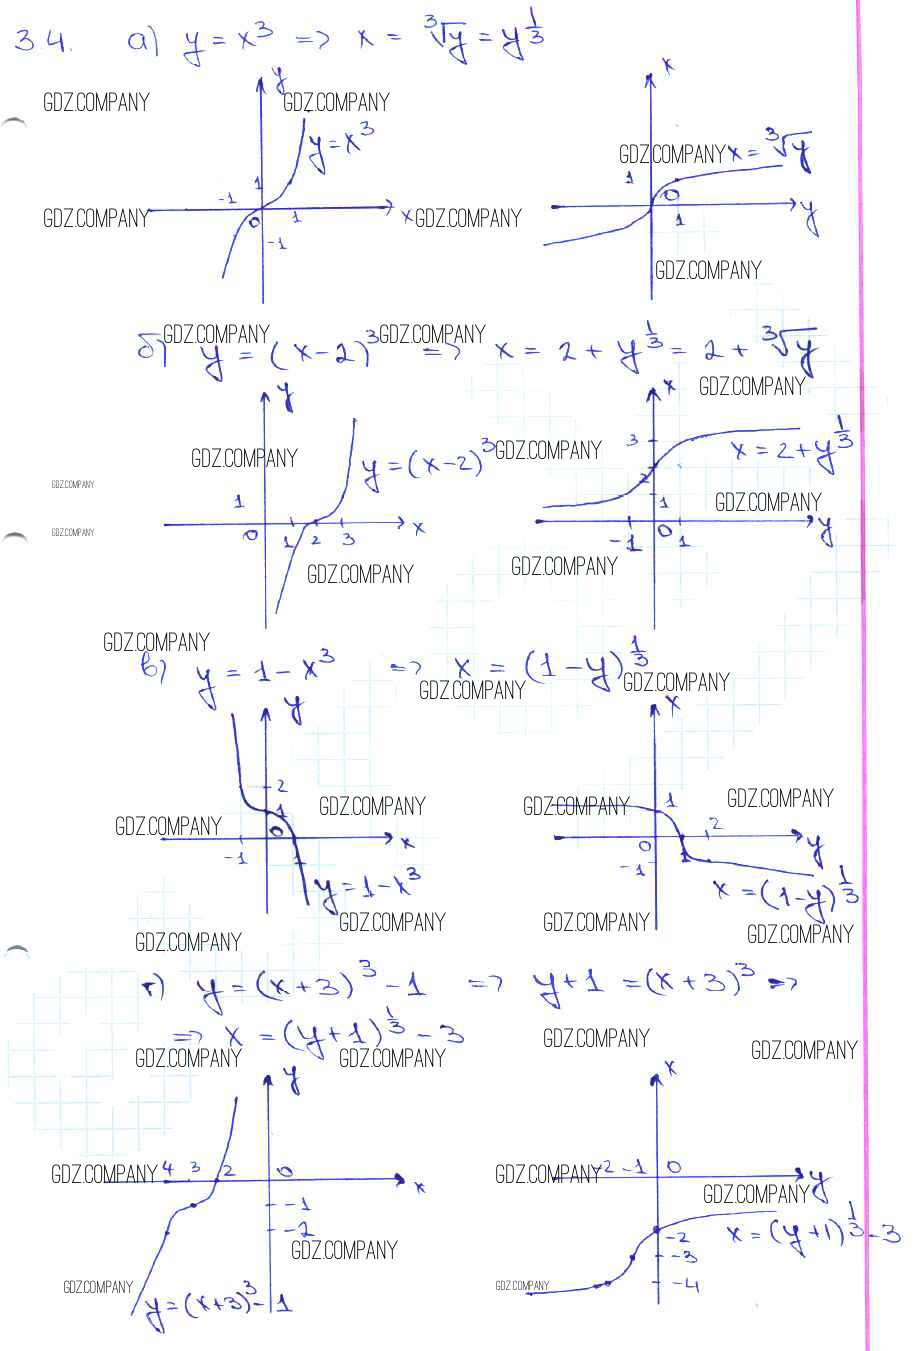 3.4. а) y = x³ => x = ∛y = y^(1/3)
y x
GDZ.COMPANY GDZ.COMPANY
y = x³
GDZ.COMPANY x = ∛y
1 1
-1 0
GDZ.COMPANY 0 1 x GDZ.COMPANY 1 y
-1
GDZ.COMPANY
GDZ.COMPANY GDZ.COMPANY
б) y = (x-2)³ => x = 2 + y^(1/3) = 2 + ∛y
y x GDZ.COMPANY
3 x = 2 + y^(1/3)
GDZ.COMPANY y = (x-2)³ GDZ.COMPANY
2
GDZ.COMPANY
1 1 GDZ.COMPANY
GDZ.COMPANY 0 1 2 3 x -1 0 1 y
GDZ.COMPANY GDZ.COMPANY
GDZ.COMPANY
в) y = 1 - x³ => x = (1-y)^(1/3)
GDZ.COMPANY GDZ.COMPANY
y x
2
1 GDZ.COMPANY GDZ.COMPANY 1 GDZ.COMPANY
GDZ.COMPANY 0 2
-1 1 x 0 1 y
-1
y = 1 - x³ x = (1-y)^(1/3)
GDZ.COMPANY GDZ.COMPANY
GDZ.COMPANY GDZ.COMPANY
г) y = (x+3)³ - 1 => y + 1 = (x+3)³ =>
=> x = (y+1)^(1/3) - 3
GDZ.COMPANY GDZ.COMPANY GDZ.COMPANY GDZ.COMPANY
y x
GDZ.COMPANY 4 3 2 0 GDZ.COMPANY -2 -1 0
x y
-1 GDZ.COMPANY
-2 -2 x = (y+1)^(1/3) - 3
GDZ.COMPANY -3
GDZ.COMPANY GDZ.COMPANY -4
y = (x+3)³ - 1